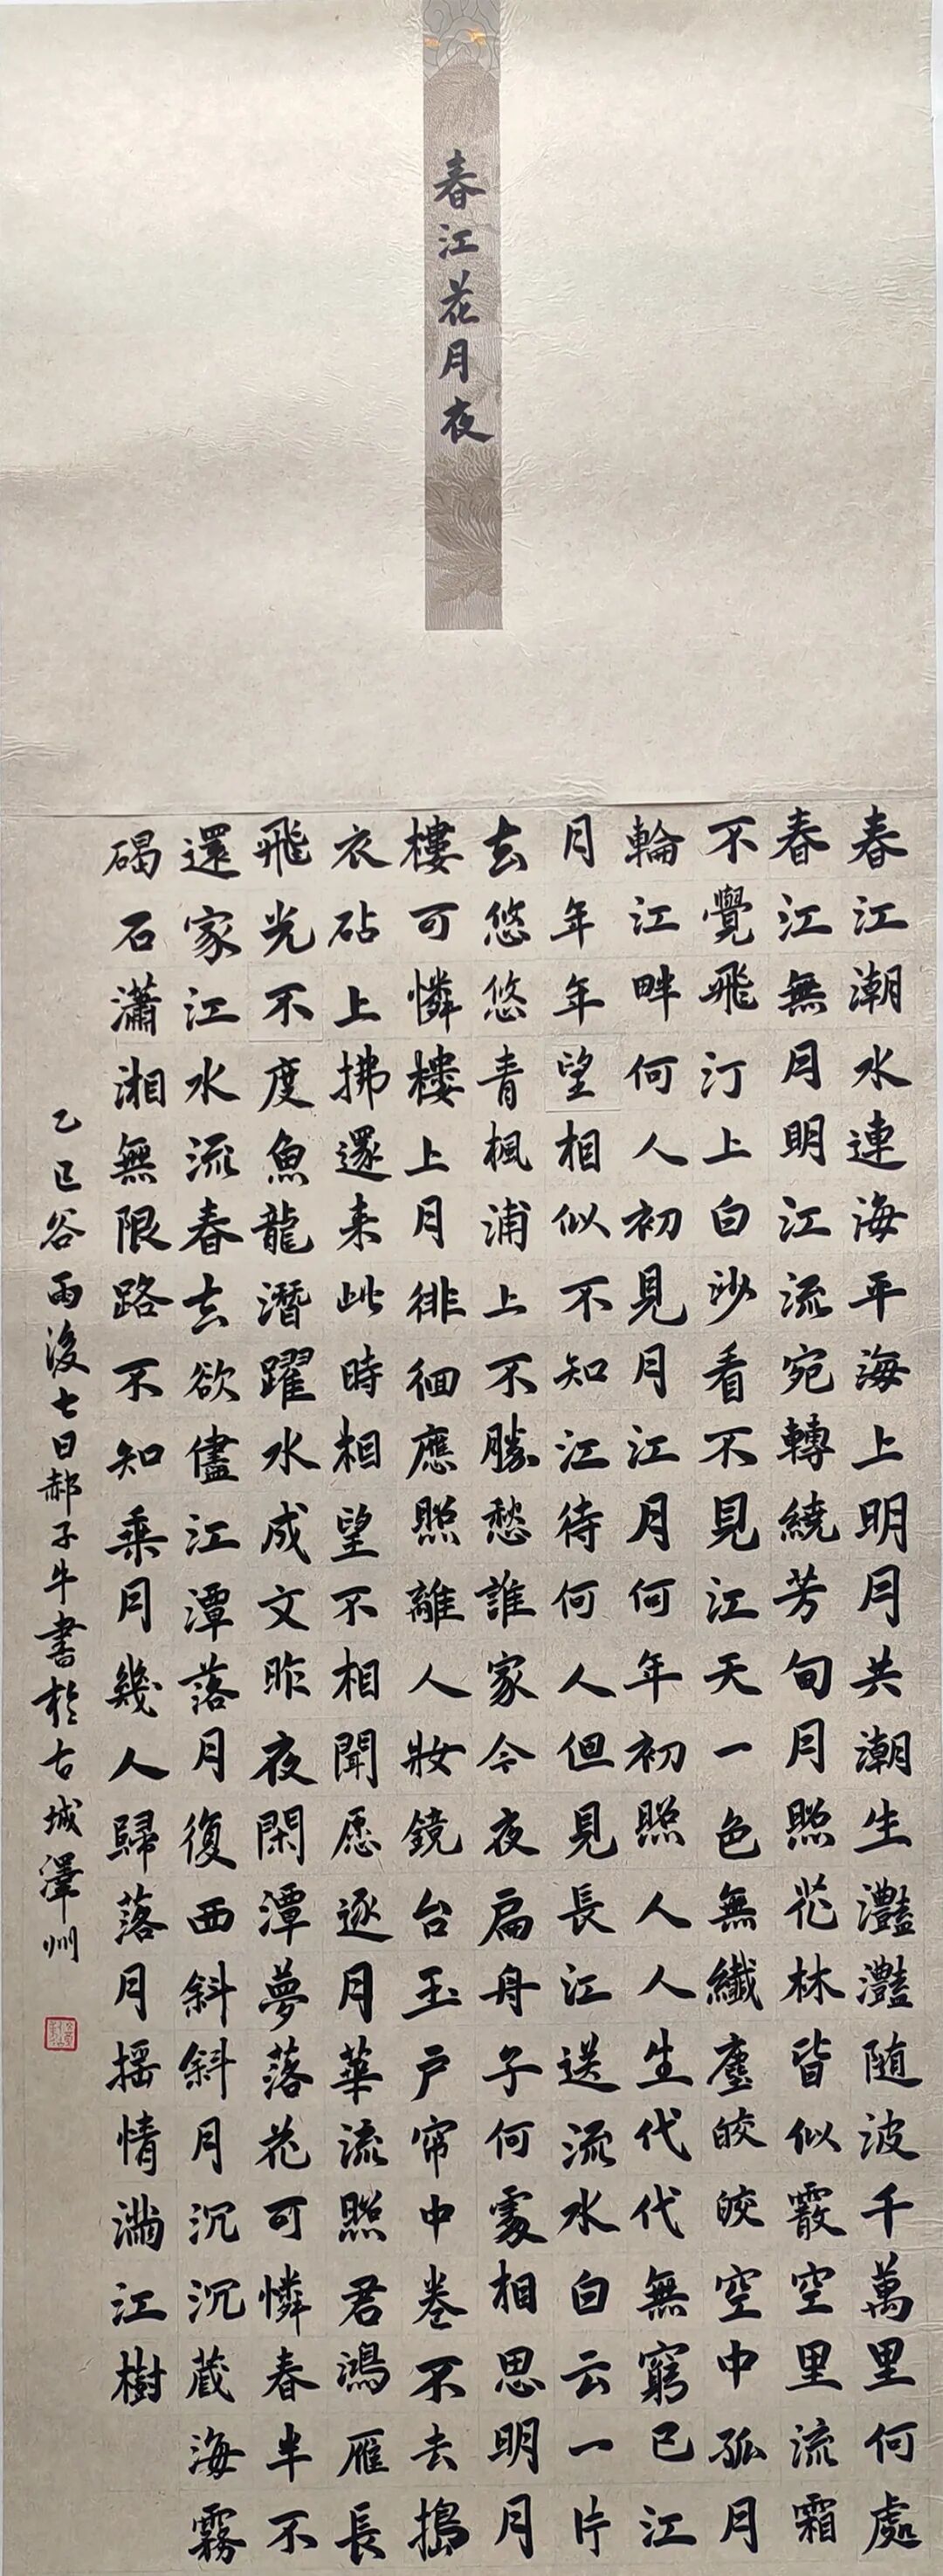 春江花月夜
春江潮水連海平海上明月共潮生灩灩随波千萬里何處
春江無月明江流宛轉繞芳甸月照花林皆似霰空里流霜
不覺飛汀上白沙看不見江天一色無纖塵皎皎空中孤月
輪江畔何人初見月江月何年初照人人生代代無窮已江
月年年望相似不知江待何人但見長江送流水白云一片
去悠悠青楓浦上不勝愁誰家今夜扁舟子何處相思明月
樓可憐樓上月徘徊應照離人妝鏡台玉戶帘中卷不去搗
衣砧上拂還来此時相望不相聞愿逐月華流照君鴻雁長
飛光不度魚龍潛躍水成文昨夜閑潭夢落花可憐春半不
還家江水流春去欲儘江潭落月復西斜斜月沉沉蔵海霧
碣石瀟湘無限路不知乘月幾人歸落月揺情滿江樹
乙巳谷雨後七日郝子牛書於古城澤州